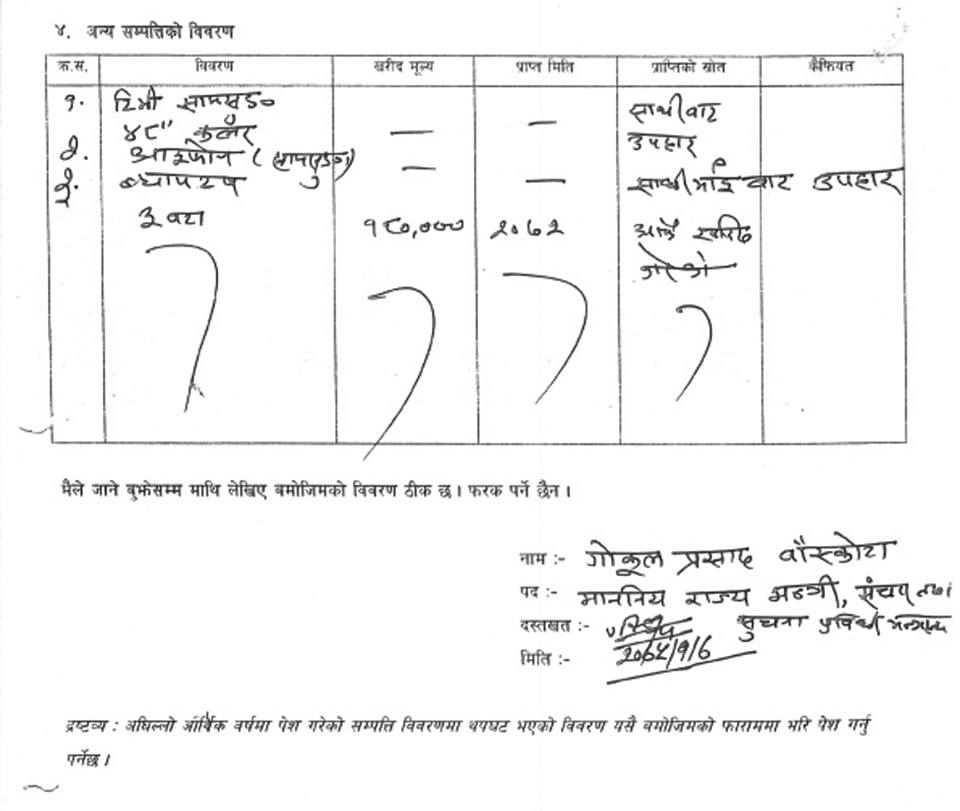 ४. अन्य सम्पत्तिको विवरण
क्र.स. विवरण खरीद मूल्य प्राप्त मिति प्राप्तिको स्रोत कैफियत
१. टिभी सामसुङ साथीबाट
४८" कलर — — उपहार
२. आइफोन (सामसुङ) — —
३. ल्यापटप साथीभाई बाट उपहार
३ वटा १८०,००० २०७२ आफै खरिद
गरेको
मैले जाने बुझेसम्म माथि लेखिए बमोजिमको विवरण ठीक छ । फरक पर्ने छैन ।
नाम :- गोकुल प्रसाद बाँस्कोटा
पद :- माननिय राज्य मन्त्री, संचार तथा
दस्तखत :- सुचना प्रविधी मन्त्रालय
मिति :-
द्रष्टव्य : अघिल्लो आर्थिक वर्षमा पेश गरेको सम्पत्ति विवरणमा थपघट भएको विवरण यसै बमोजिमको फाराममा भरि पेश गर्नु
पर्नेछ ।